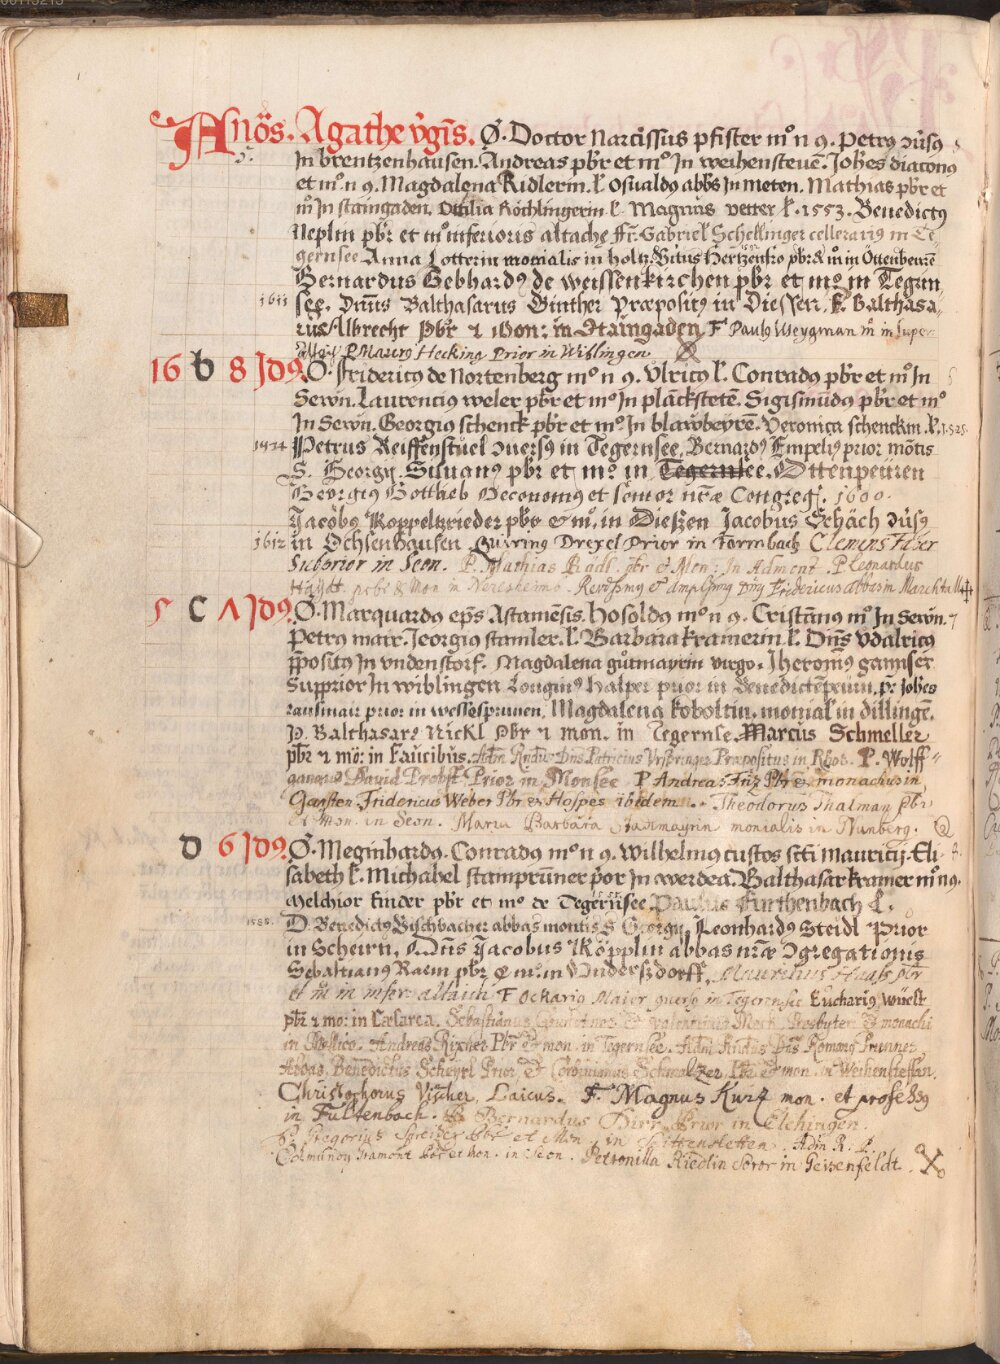 Anōs. Agathe v̄gīs. Ø. Doctor Narcissus pfister mº n 9. Petrus
In brentzenhausen. Andreas pbr et mº In weihensteuē. Joh̄es diaconus
et mº n 9. Magdalena Ridlerin. ł. Osualdo abb̄s In meten. Mathias pbr et
mº In staingaden. Ottilia Röchlingerin ł. Magnus vetter ł. 1553. Benedictus
Neplin pbr et mº inferioris altache Fr. Gabriel Schellinger cellerarius in Te
gernsee Anna Lotterin monialis in holtz. Vitus pbr & m̊ in Ottenbeurē
Bernardus Gebhardus de weissenkirchen pbr et mº in Tegrin
1611 see. Dn̄us Balthasarus Ginther Præpositus in Diessen. F. Balthasa-
rus Albrecht Pbr & Mon: in Staingaden F Paulus Weygman m̊ in super
P Maurus Hecking Prior in Wiblingen
16 b 8 Jd9. O. Fridericus de Nortenberg mº n 9. Ulricus ł. Conradus pbr et mº In
Sewn. Laurencius weler pbr et mº In planckstetē. Sigismūdus pbr et mº
In Sewn. Georgius schenck pbr et mº In blawbeyrē. Veronica schenckin ł. 1525
1474 Petrus Reiffenstuel in Tegernsee. Bernardus Empelius prior mōtis
S. Georgy. Siluanus pbr et mº in Tegernsee. Ottenpeüren
Georgius Gottlieb Oeconomus et senior nr̄æ Congreg. 1600.
Jacobus Koppeltzrieder pbr & m̊, in Dietzen Jacobus Schäch
1612 in Ochsenhausen. Quiring Drexel Prior in Formbach Clemens
Subprior in Seon. P. Mathias Rädl pbr & Mon: In Admont. P Leonardus
Haydt pr̄br & Mon in Neresheimb. Fridericus abbas in Marchtall
5 C A Jd9. O. Marquardus ep̄s Astamēsis. hosoldus mº n 9. Cristānus mº In Sewn.
Petrus mair. Jeorgius stamler. ł. Barbara kramerin ł. Dn̄s vdalricus
p̄positus In vndenstorf. Magdalena gutmayrin virgo. Iheronimus gannser
Supprior In wiblingen Longinus halper prior in Benedictēpeurn. pr. Joh̄es
prior in wessesprunen. Magdalena koboltin. monial in dillingē.
P. Balthasar Nickl Pbr & mon. in Tegernse. Marcus Schmeller
pbr & mō: in Faucibus. Patricius Præpositus in Rhor. P. Wolff-
gangus David Probst Prior in Monsee P Andreas Fitz Pbr & monachus in
Garsten Fridericus Weber Pbr & Hospes ibidem. Theodorus Thalman pbr
et Mon. in Seon. Maria Barbara Stadtmayrin monialis in Nunberg.
D 6 Jd9. O. Meginhardus. Conradus mº n 9. Wilhelmus custos sc̄ti Mauricij. Eli-
sabeth ł. Michahel stamprunner prior In werdea. Balthasar kramer mº n 9.
Melchior pbr et mº de Tegernsee. Paulus Furthenbach L.
D. Benedictus Bischbacher abbas montis S Georgij. Leonhardus Steidl Prior
in Scheirn. Dn̄s Jacobus Köpplin abbas nr̄æ 9gregationis
Sebastianus Raem pbr & m̊ in Vndersdorff. Maurilius Haass pbr
et m̊ in infer: altaich F Ochariq Maier in Tegernsee Eucharius wüelt
pbr & mo: in Cæsarea. Sebastianus & Valentinus Presbyteri & monachi
in Andreas Rixher Pbr & mon. in Tegernsee. Romanus Prenner
Abbas. Benedictus Scheyrl Prior & Corbinianus Schmeltzer Pbr & mon. in Weihenstephan.
Christophorus Vischer, Laicus. F. Magnus Kurtz mon. et profess9
in Fultenbach. P. Bernardus Dirr Prior in Elchingen.
P. Gregorius Spreizer Pbr et Mon, in Adm. R. P.
Edmundus Gramont Pbr et Mon. in Seon. Petronilla Riedlin Soror in Geisenfeldt.